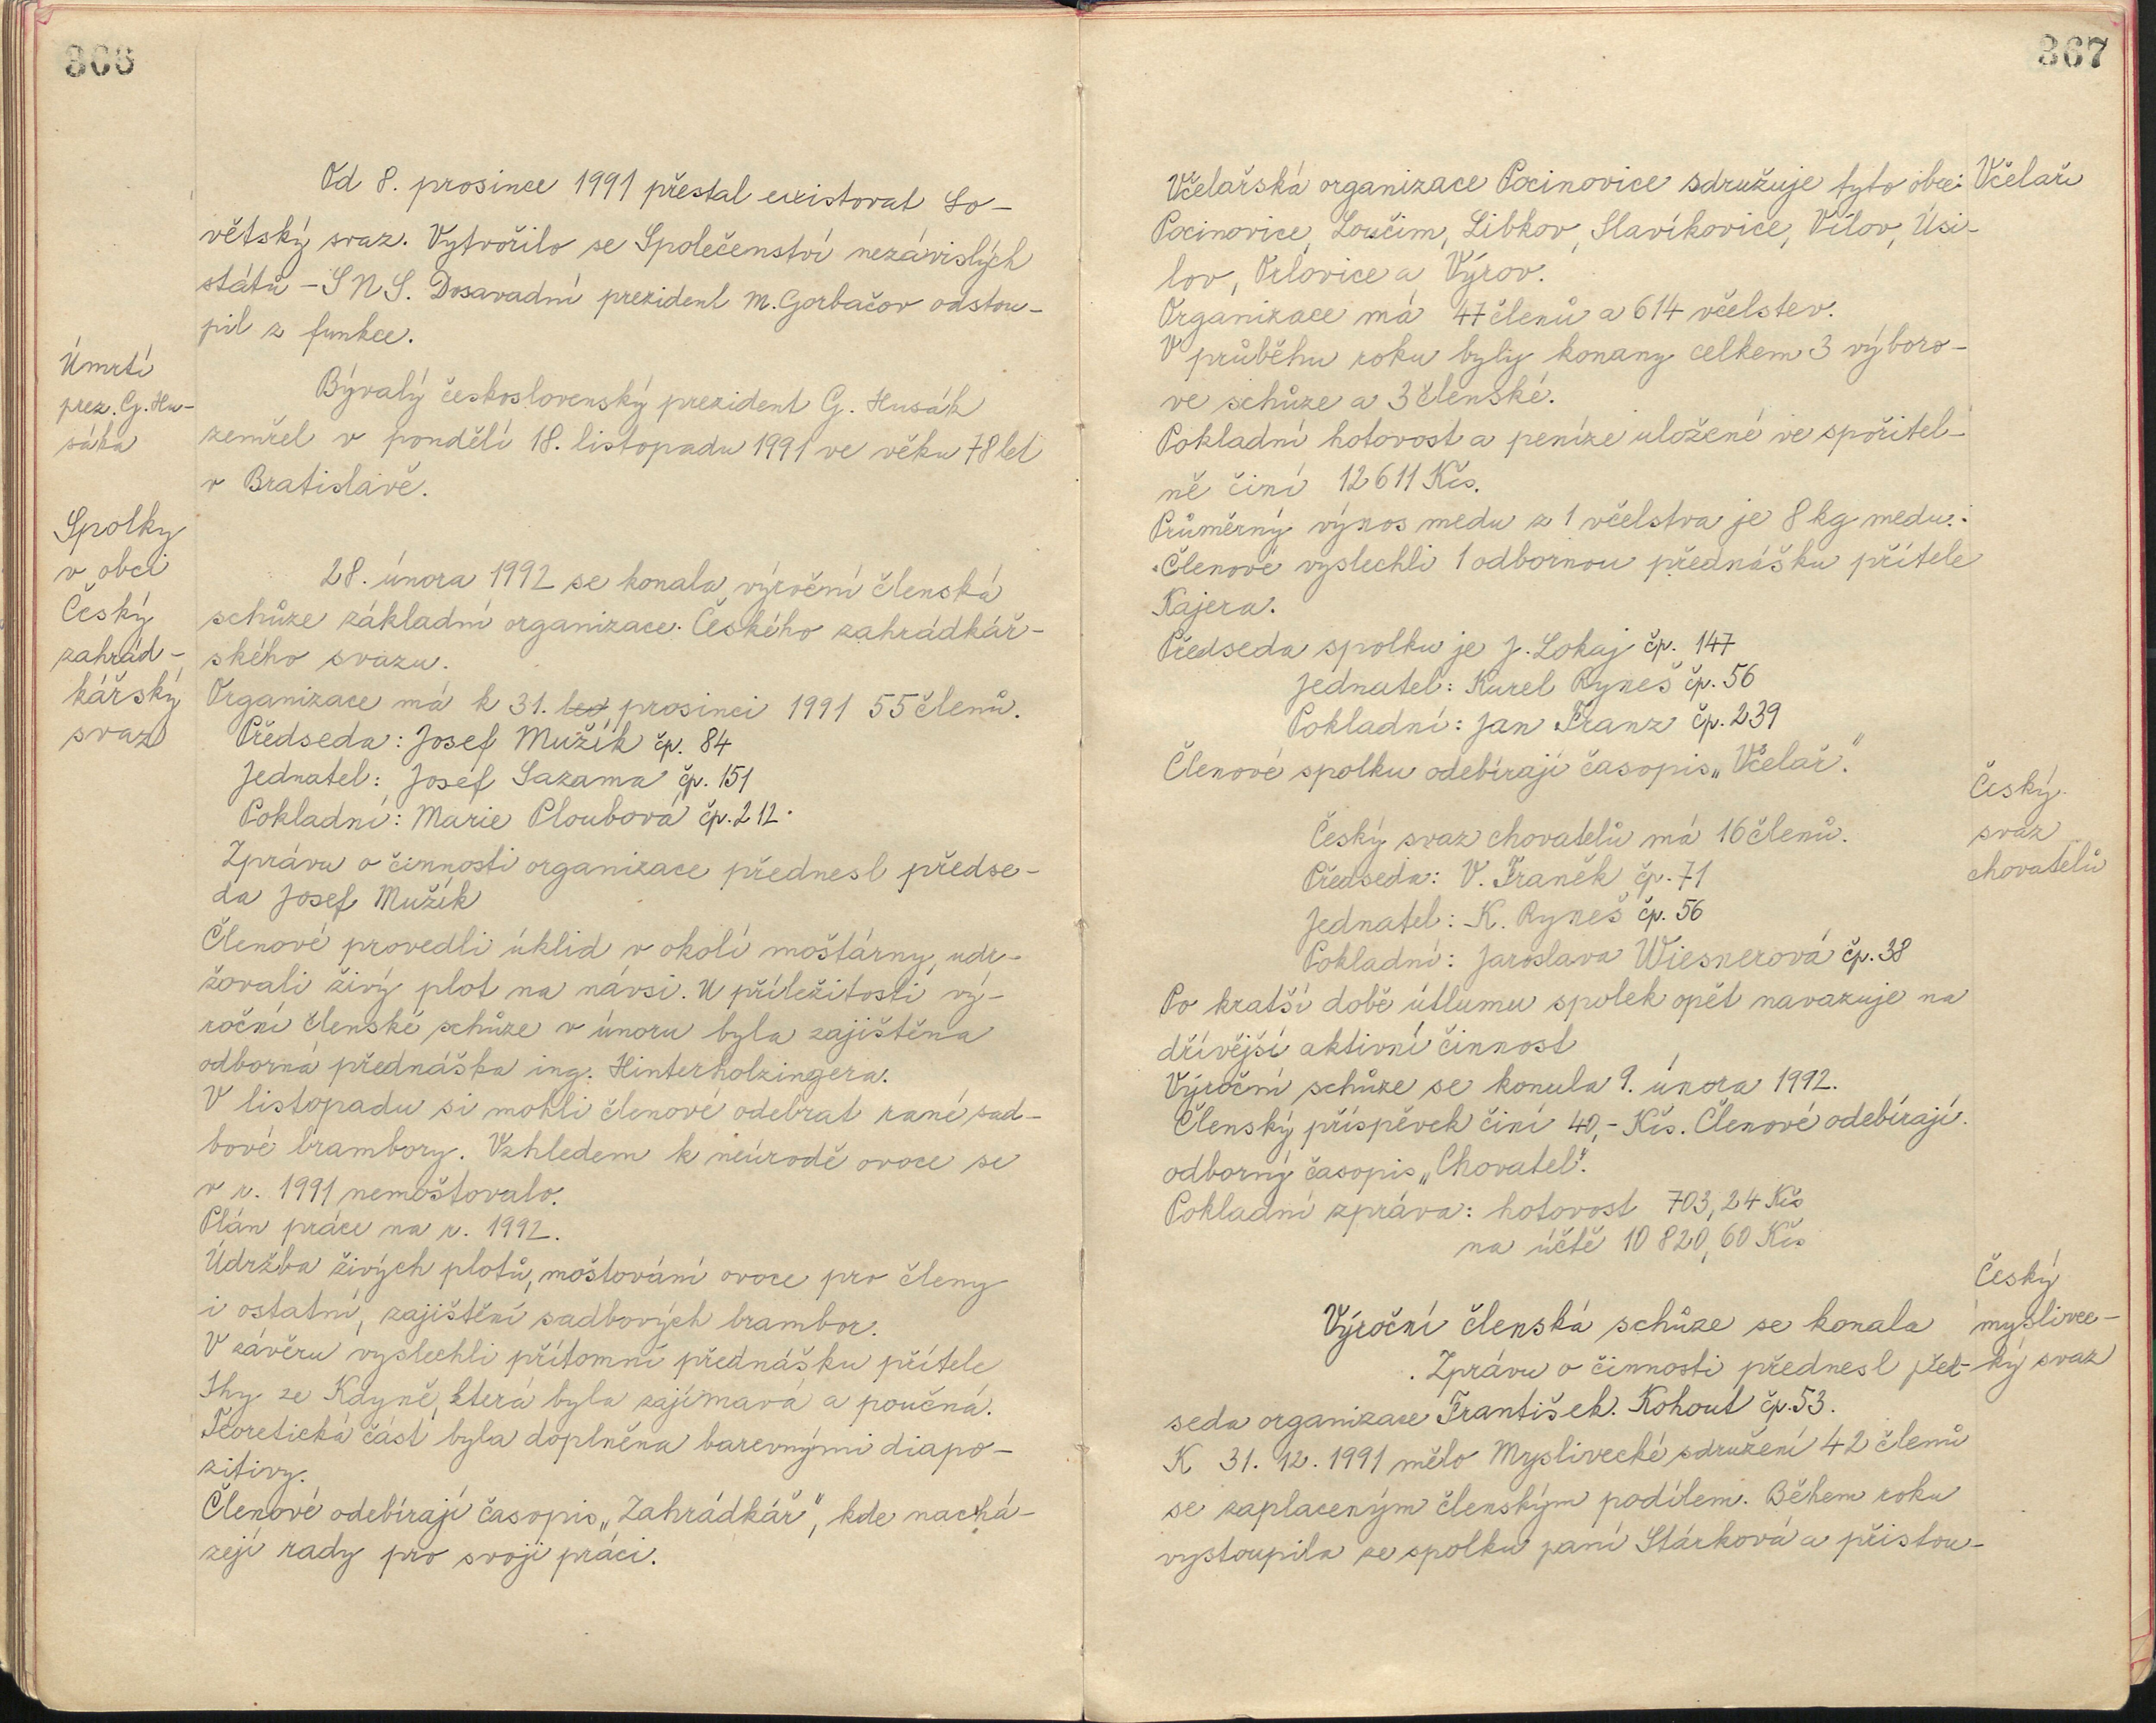 366
Od 8. prosince 1991 přestal existovat So-
větský svaz. Vytvořilo se Společenství nezávislých
států - SNS. Dosavadní prezident M. Gorbačov odstou-
pil z funkce.
Úmrtí
prez. G. Hu-
sáka
Bývalý československý prezident G. Husák
zemřel v pondělí 18. listopadu 1991 ve věku 78 let
v Bratislavě.
Spolky
v obci
Český
zahrád-
kářský
svaz
28. února 1992 se konala výroční členská
schůze základní organizace Českého zahrádkář-
ského svazu.
Organizace má k 31. led prosinci 1991 55 členů.
Předseda: Josef Mužík čp. 84
Jednatel: Josef Sazama čp. 151
Pokladní: Marie Ploubová čp. 212.
Zprávu o činnosti organizace přednesl předse-
da Josef Mužík
Členové provedli úklid v okolí moštárny, udr-
žovali živý plot na návsi. U příležitosti vý-
roční členské schůze v únoru byla zajištěna
odborná přednáška ing. Hinterholzingera.
V listopadu si mohli členové odebrat rané sad-
bové brambory. Vzhledem k neúrodě ovoce se
v r. 1991 nemoštovalo.
Plán práce na r. 1992.
Údržba živých plotů, moštování ovoce pro členy
i ostatní, zajištění sadbových brambor.
V závěru vyslechli přítomní přednášku přítele
Ihy ze Kdyně, která byla zajímavá a poučná.
Teoretická část byla doplněna barevnými diapo-
zitivy.
Členové odebírají časopis „Zahrádkář“, kde nachá-
zejí rady pro svoji práci.
367
Včelaři
Včelařská organizace Pocinovice sdružuje tyto obce:
Pocinovice, Loučim, Libkov, Slavíkovice, Vílov, Úsi-
lov, Orlovice a Výrov.
Organizace má 47 členů a 614 včelstev.
V průběhu roku byly konany celkem 3 výboro-
ve schůze a 3 členské.
Pokladní hotovost a peníze uložené ve spořitel-
ně činí 12 611 Kčs.
Průměrný výnos medu z 1 včelstva je 8 kg medu.
Členové vyslechli 1 odbornou přednášku přítele
Kajera.
Předseda spolku je J. Lokaj čp. 147
Jednatel: Karel Ryneš čp. 56
Pokladní: Jan Franz čp. 239
Členové spolku odebírají časopis „Včelař“.
Český
svaz
chovatelů
Český svaz chovatelů má 16 členů.
Předseda: V. Franěk čp. 71
Jednatel: K. Ryneš čp. 56
Pokladní: Jaroslava Wiesnerová čp. 38
Po kratší době útlumu spolek opět navazuje na
dřívější aktivní činnost
Výroční schůze se konala 9. února 1992.
Členský příspěvek činí 40,- Kčs. Členové odebírají
odborný časopis „Chovatel“.
Pokladní zpráva: hotovost 703,24 Kčs
na účtě 10 820,60 Kčs
Český
myslivec-
ký svaz
Výroční členská schůze se konala
. Zprávu o činnosti přednesl před-
seda organizace František Kohout čp. 53.
K 31. 12. 1991 mělo Myslivecké sdružení 42 členů
se zaplaceným členským podílem. Během roku
vystoupila ze spolku paní Stárková a přistou-